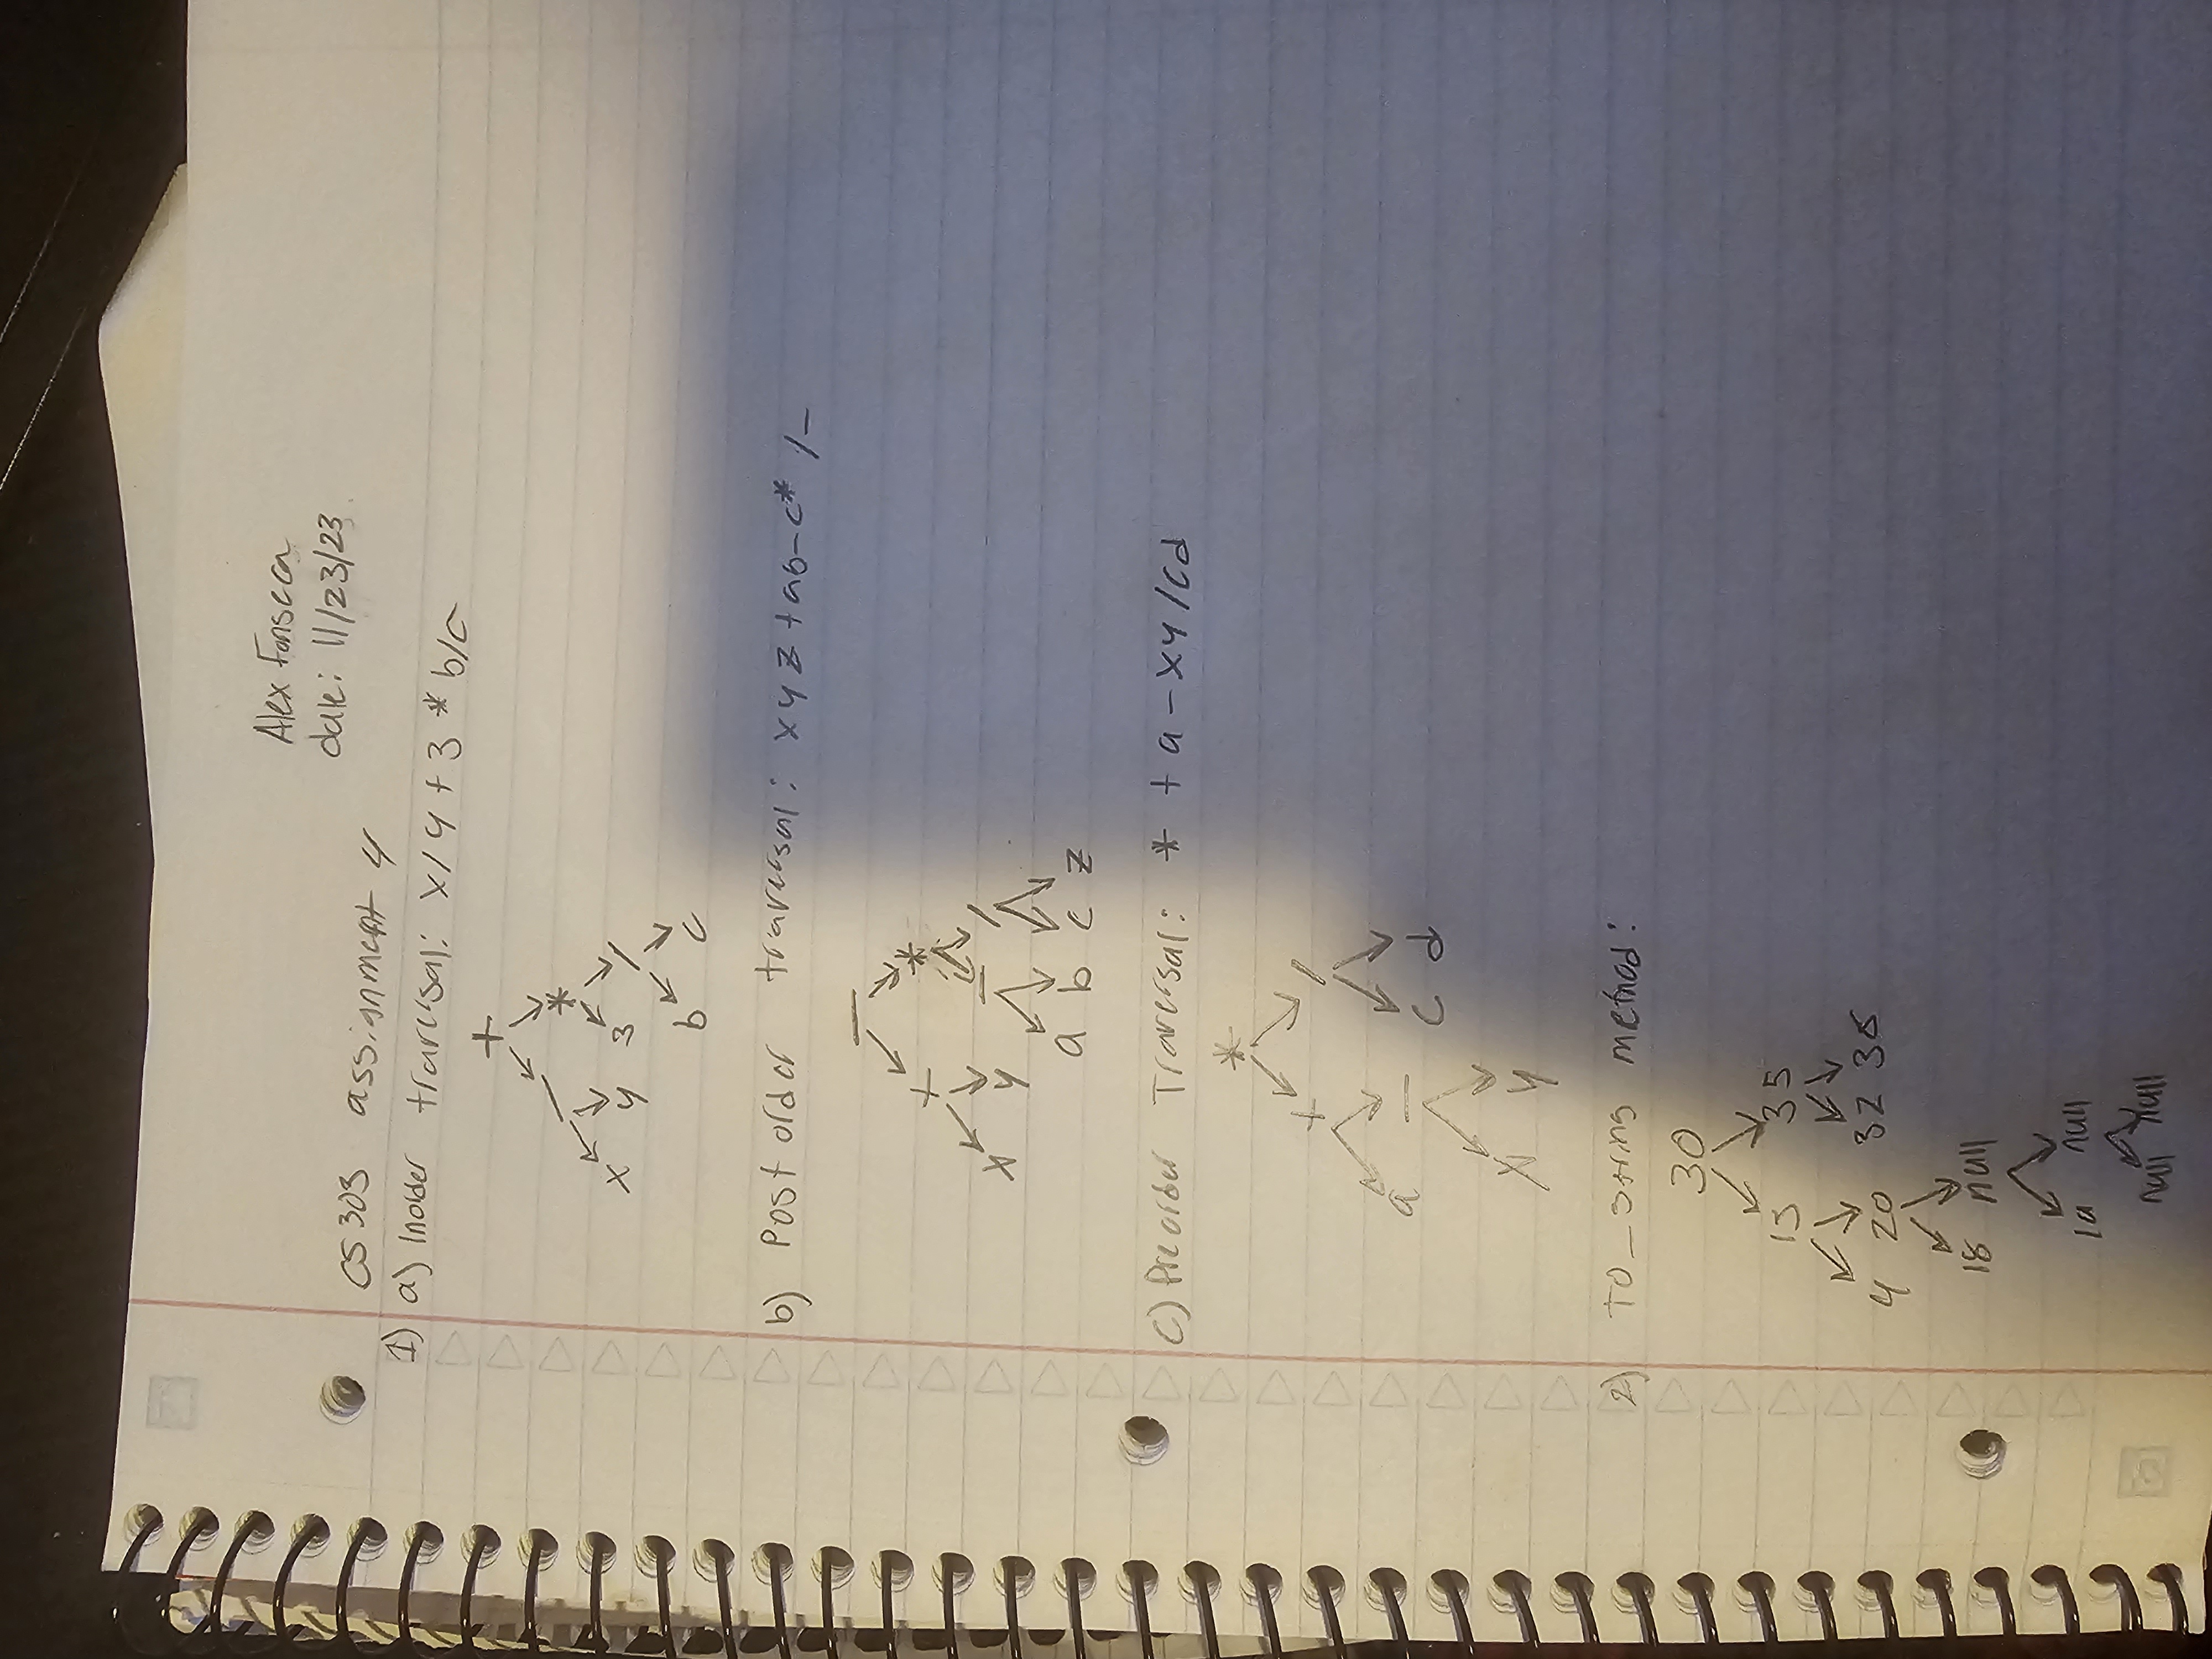 Alex Fonseca
date: 11/23/23
CS303 assignment 4
1) a) Inorder traversal: x/y+3*b/c
+
— *
x y 3 /
b c
b) Post order traversal: xyz+ab-c* /-
—
+ *
x y — /
a b c z
c) Preorder Traversal: * +a-xy/cd
*
+ /
a — c d
x y
2) TO_string method:
30
15 35
4 20 32 38
18 null
null
null null